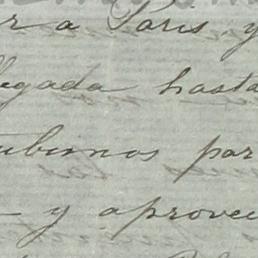 r a Paris y
legada hasta
ubimos par
y aprovec